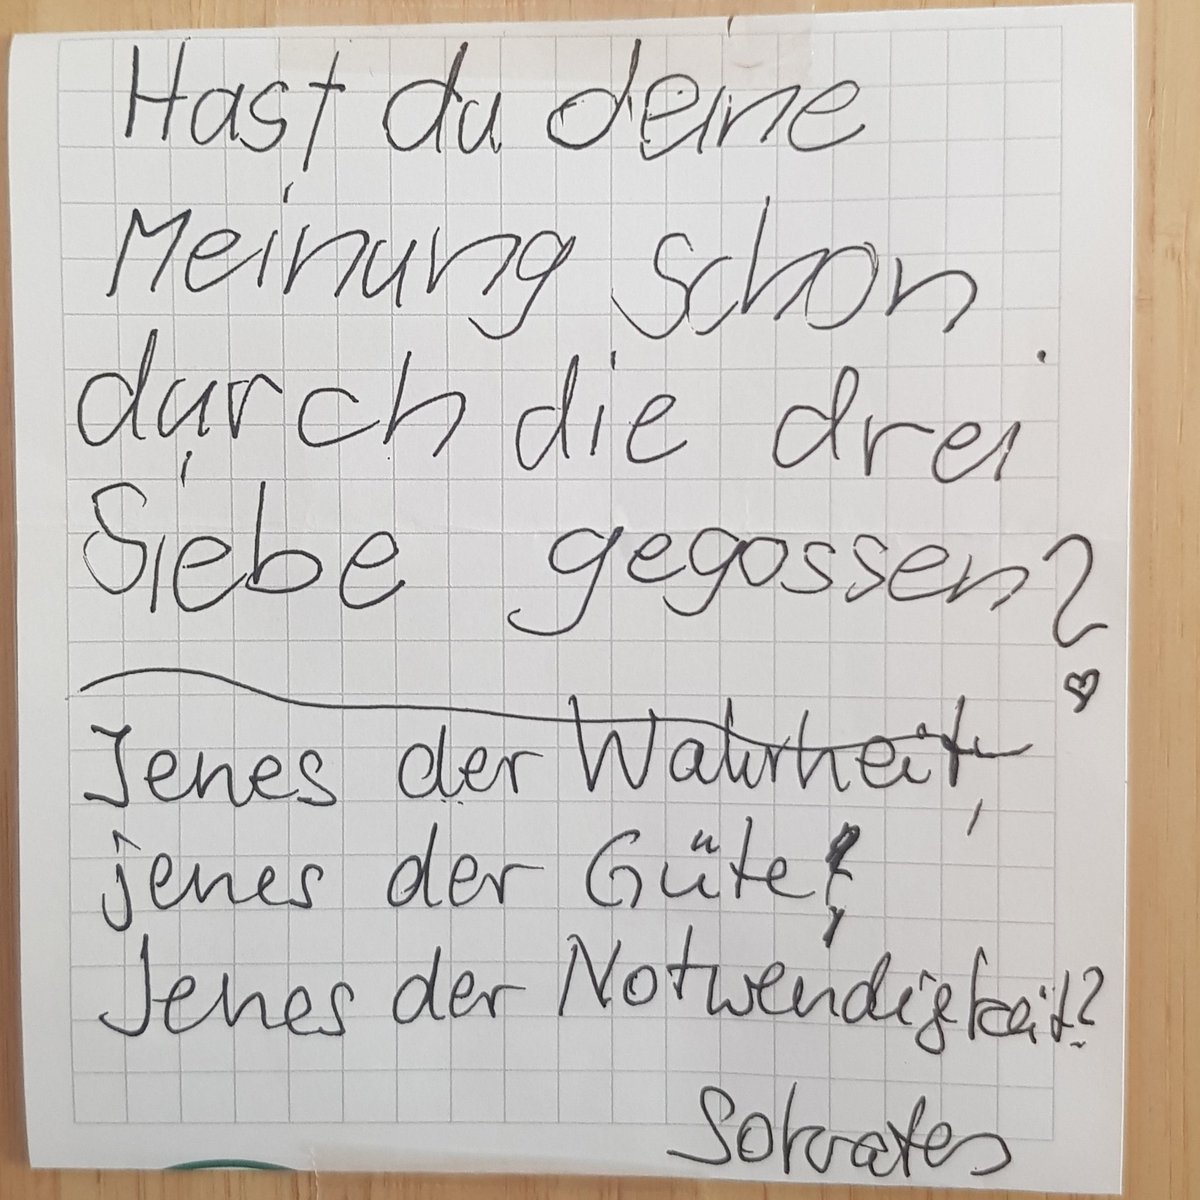 Hast du deine
Meinung schon
durch die drei
Siebe gegossen?
Jenes der Wahrheit,
jenes der Güte,
Jenes der Notwendigkeit?
Sokrates